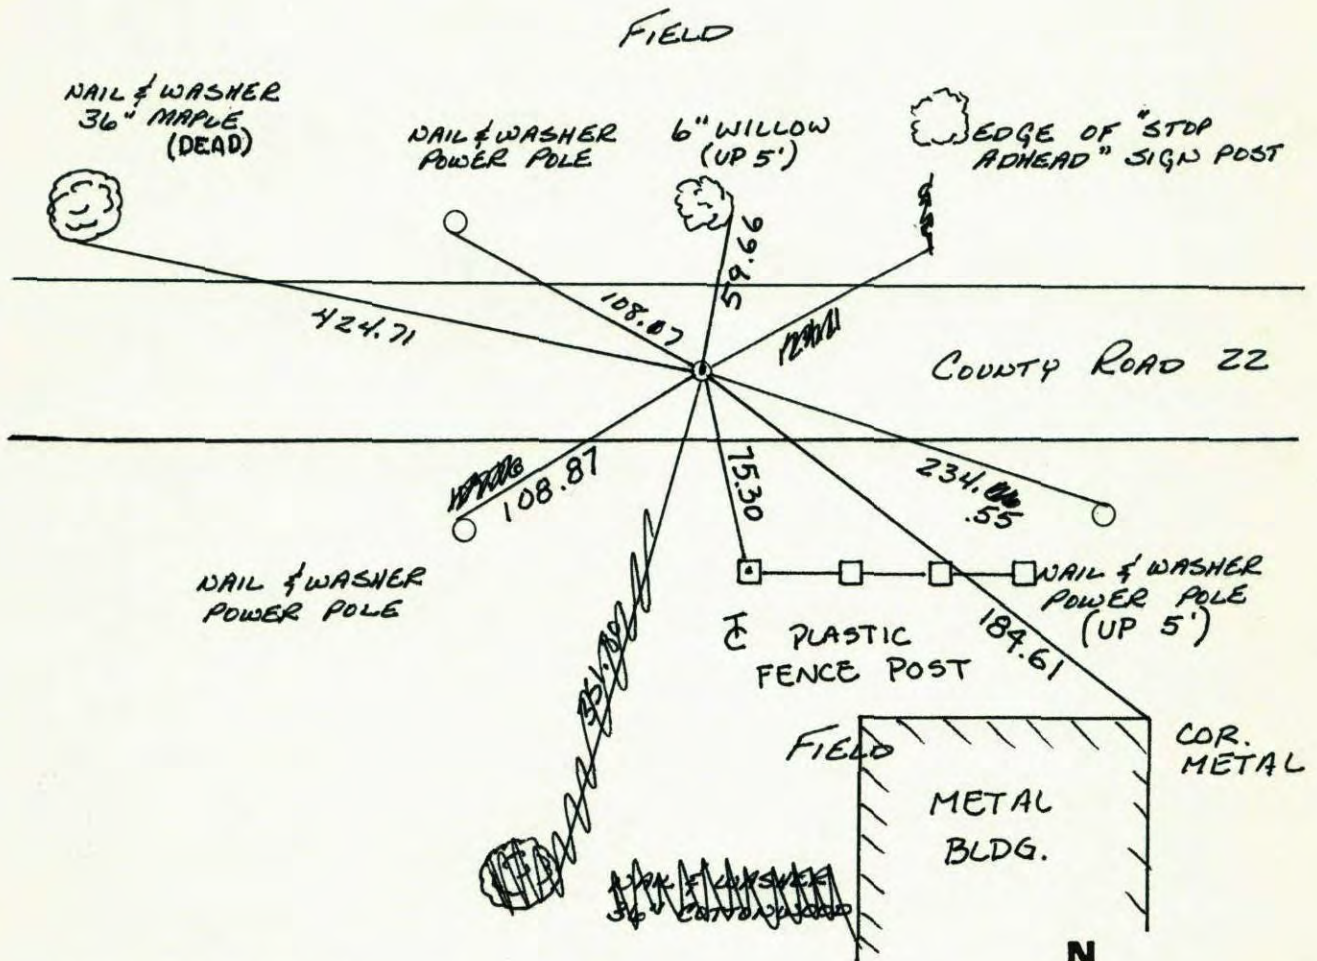 FIELD
NAIL & WASHER
36" MAPLE
(DEAD)
NAIL & WASHER
POWER POLE
6" WILLOW
(UP 5')
EDGE OF "STOP
ADHEAD" SIGN POST
424.71
108.07
59.66
COUNTY ROAD 22
108.87
75.30
234.
.55
NAIL & WASHER
POWER POLE
NAIL & WASHER
POWER POLE
(UP 5')
184.61
PLASTIC
FENCE POST
FIELD
COR.
METAL
METAL
BLDG.
NAIL & WASHER
36" COTTONWOOD
N